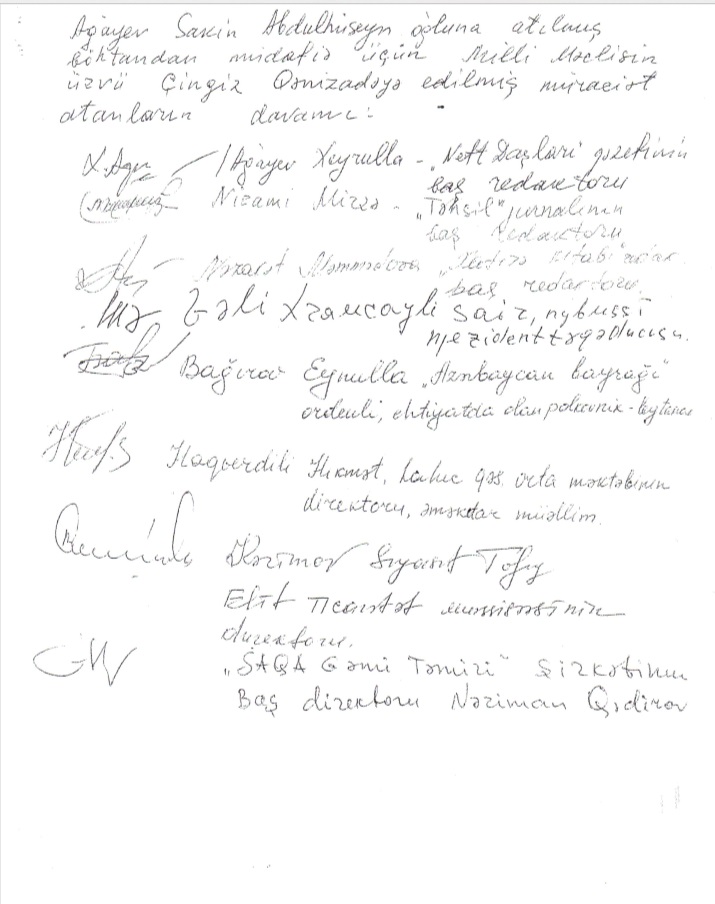 Ağayev Sakin Abdulhüseyn oğluna atılmış
böhtandan müdafiə üçün Milli Məclisin
üzvü Çingiz Qənizadəyə edilmiş müraciət
atanların davamı:
X.Ağa Ağayev Xeyrulla - "Neft Daşları" qəzetinin
baş redaktoru
Nizami Mirzə - "Təhsil" jurnalının
baş redaktoru
Nəzakət Məmmədova kitabı
baş redaktoru
Vəli Xramçaylı şair,
prezident təqaüdçüsü.
Bağırov Eynulla "Azərbaycan bayrağı"
ordenli, ehtiyatda olan polkovnik-leytenant
Haqverdili Hikmət, Lahıc qəs. orta məktəbinin
direktoru, əməkdar müəllim.
Kazımov Siyasət Tofiq
Elit Ticarət müəssisəsinin
direktoru.
"SAQA Gəmi Təmiri" Şirkətinin
Baş direktoru Nəriman Qədirov